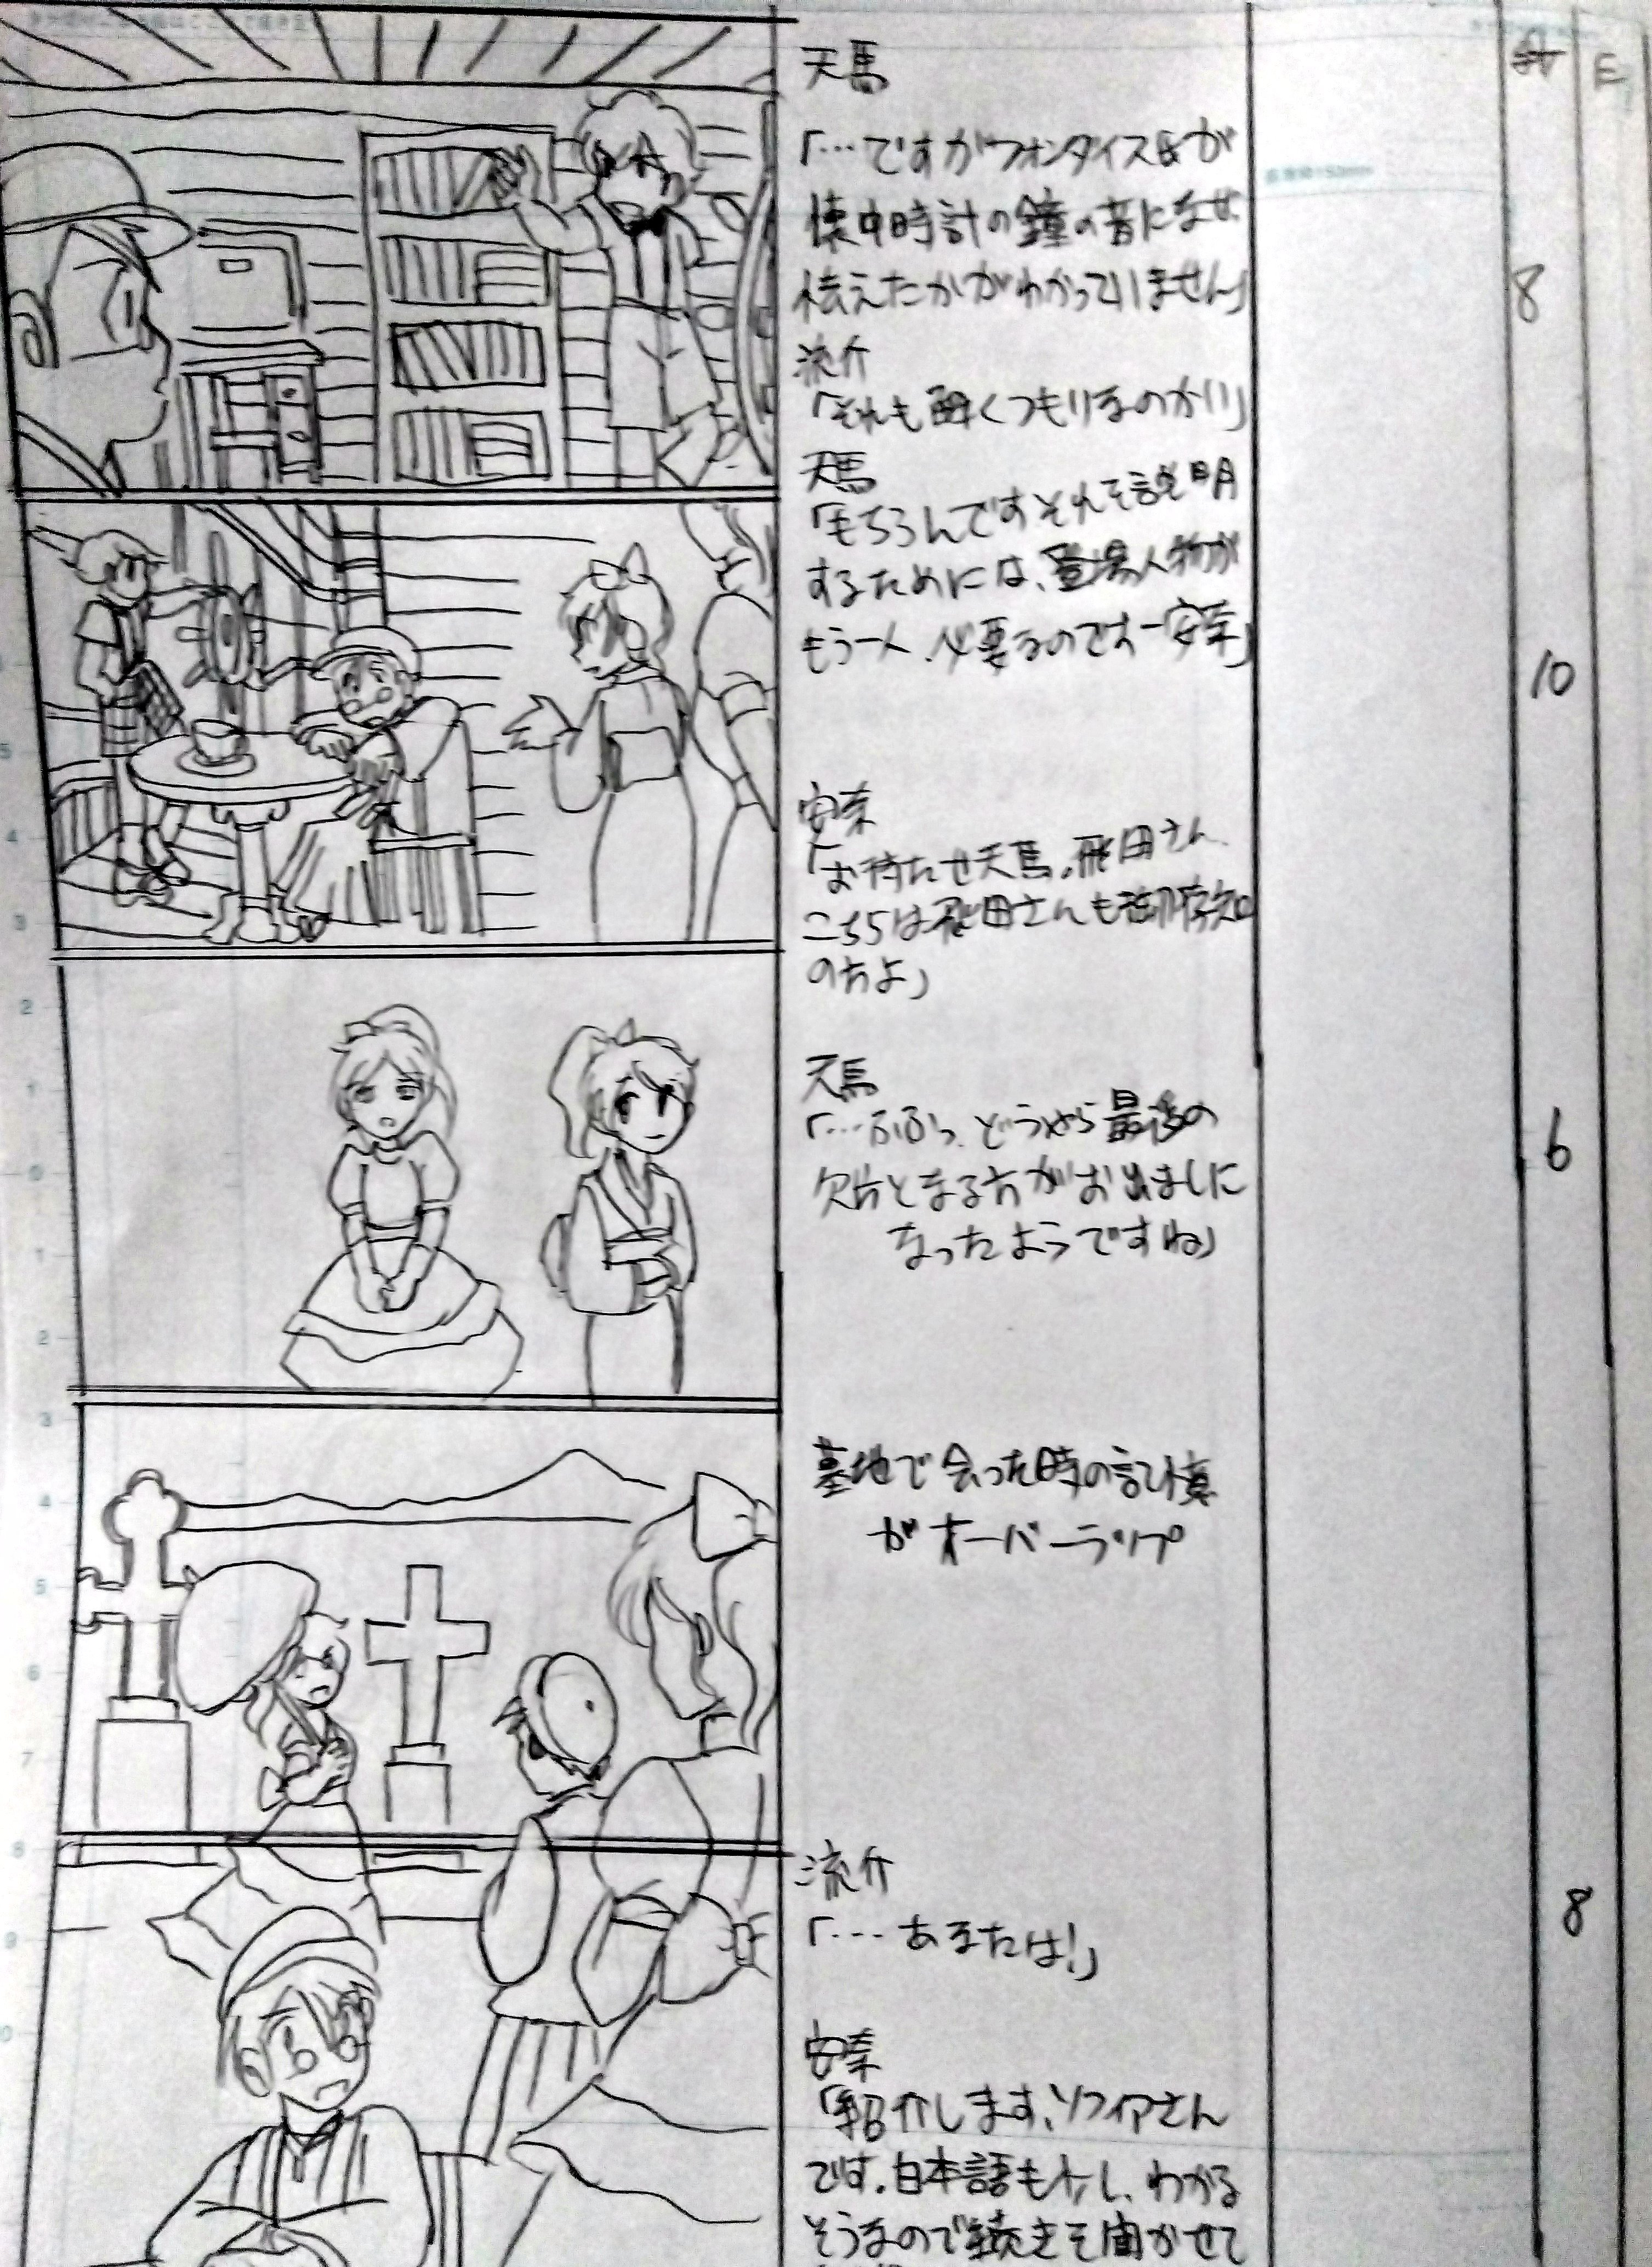 天馬
「…ですがフォンダイス氏が
懐中時計の鐘の音になぜ
伝えたかがわかっていません」
8
流介
「それも解くつもりなのかい」
天馬
「もちろんですそれを説明
するためには、登場人物が
もう一人、必要なのです一安奈」
10
安奈
「お待たせ天馬。飛田さん
こちらは飛田さんも御存知
の方よ」
天馬
「…ふふっ、どうやら最後の
欠片となる方がお出ましに
なったようですね」
6
墓地で会った時の記憶
がオーバーラップ
流介
「…あなたは!」
8
安奈
「紹介します、ソフィアさん
です。日本語も少し、わかる
そうなので続きを聞かせて